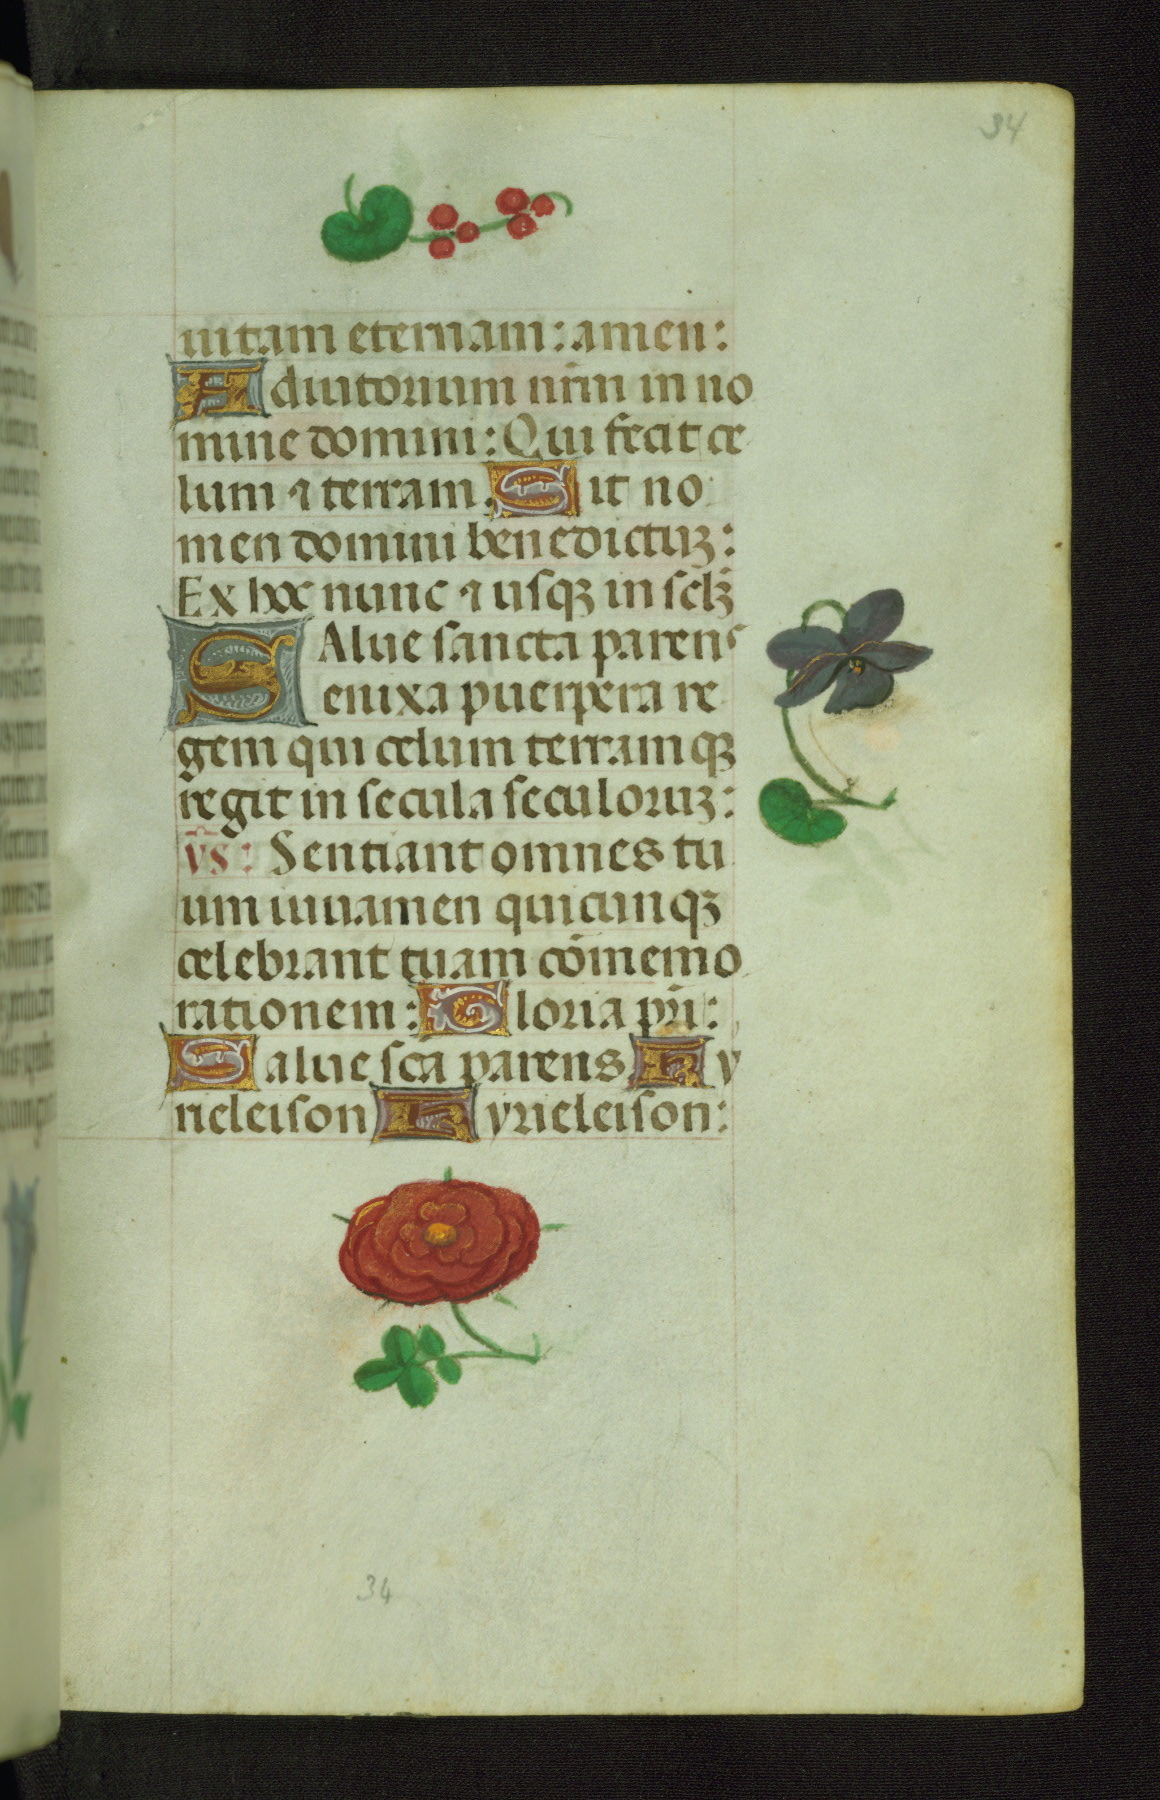 34
uitam eternam: amen:
Adiutorium nr̄m in no
mine domini: Qui fecit ce
lum ⁊ terram. Sit no
men domini benedictuꝫ:
Ex hoc nunc ⁊ usqꝫ in sclꝫ̄
SAlue sancta parens
enixa puerpera re
gem qui celum terramqꝫ
regit in secula seculoruꝫ:
v̄s: Sentiant omnes tu
um iuuamen quicunqꝫ
celebrant tuam cōmemo
rationem: Gloria pr̄i:
Salue sc̄a parens Ky
rieleison Kyrieleison:
34